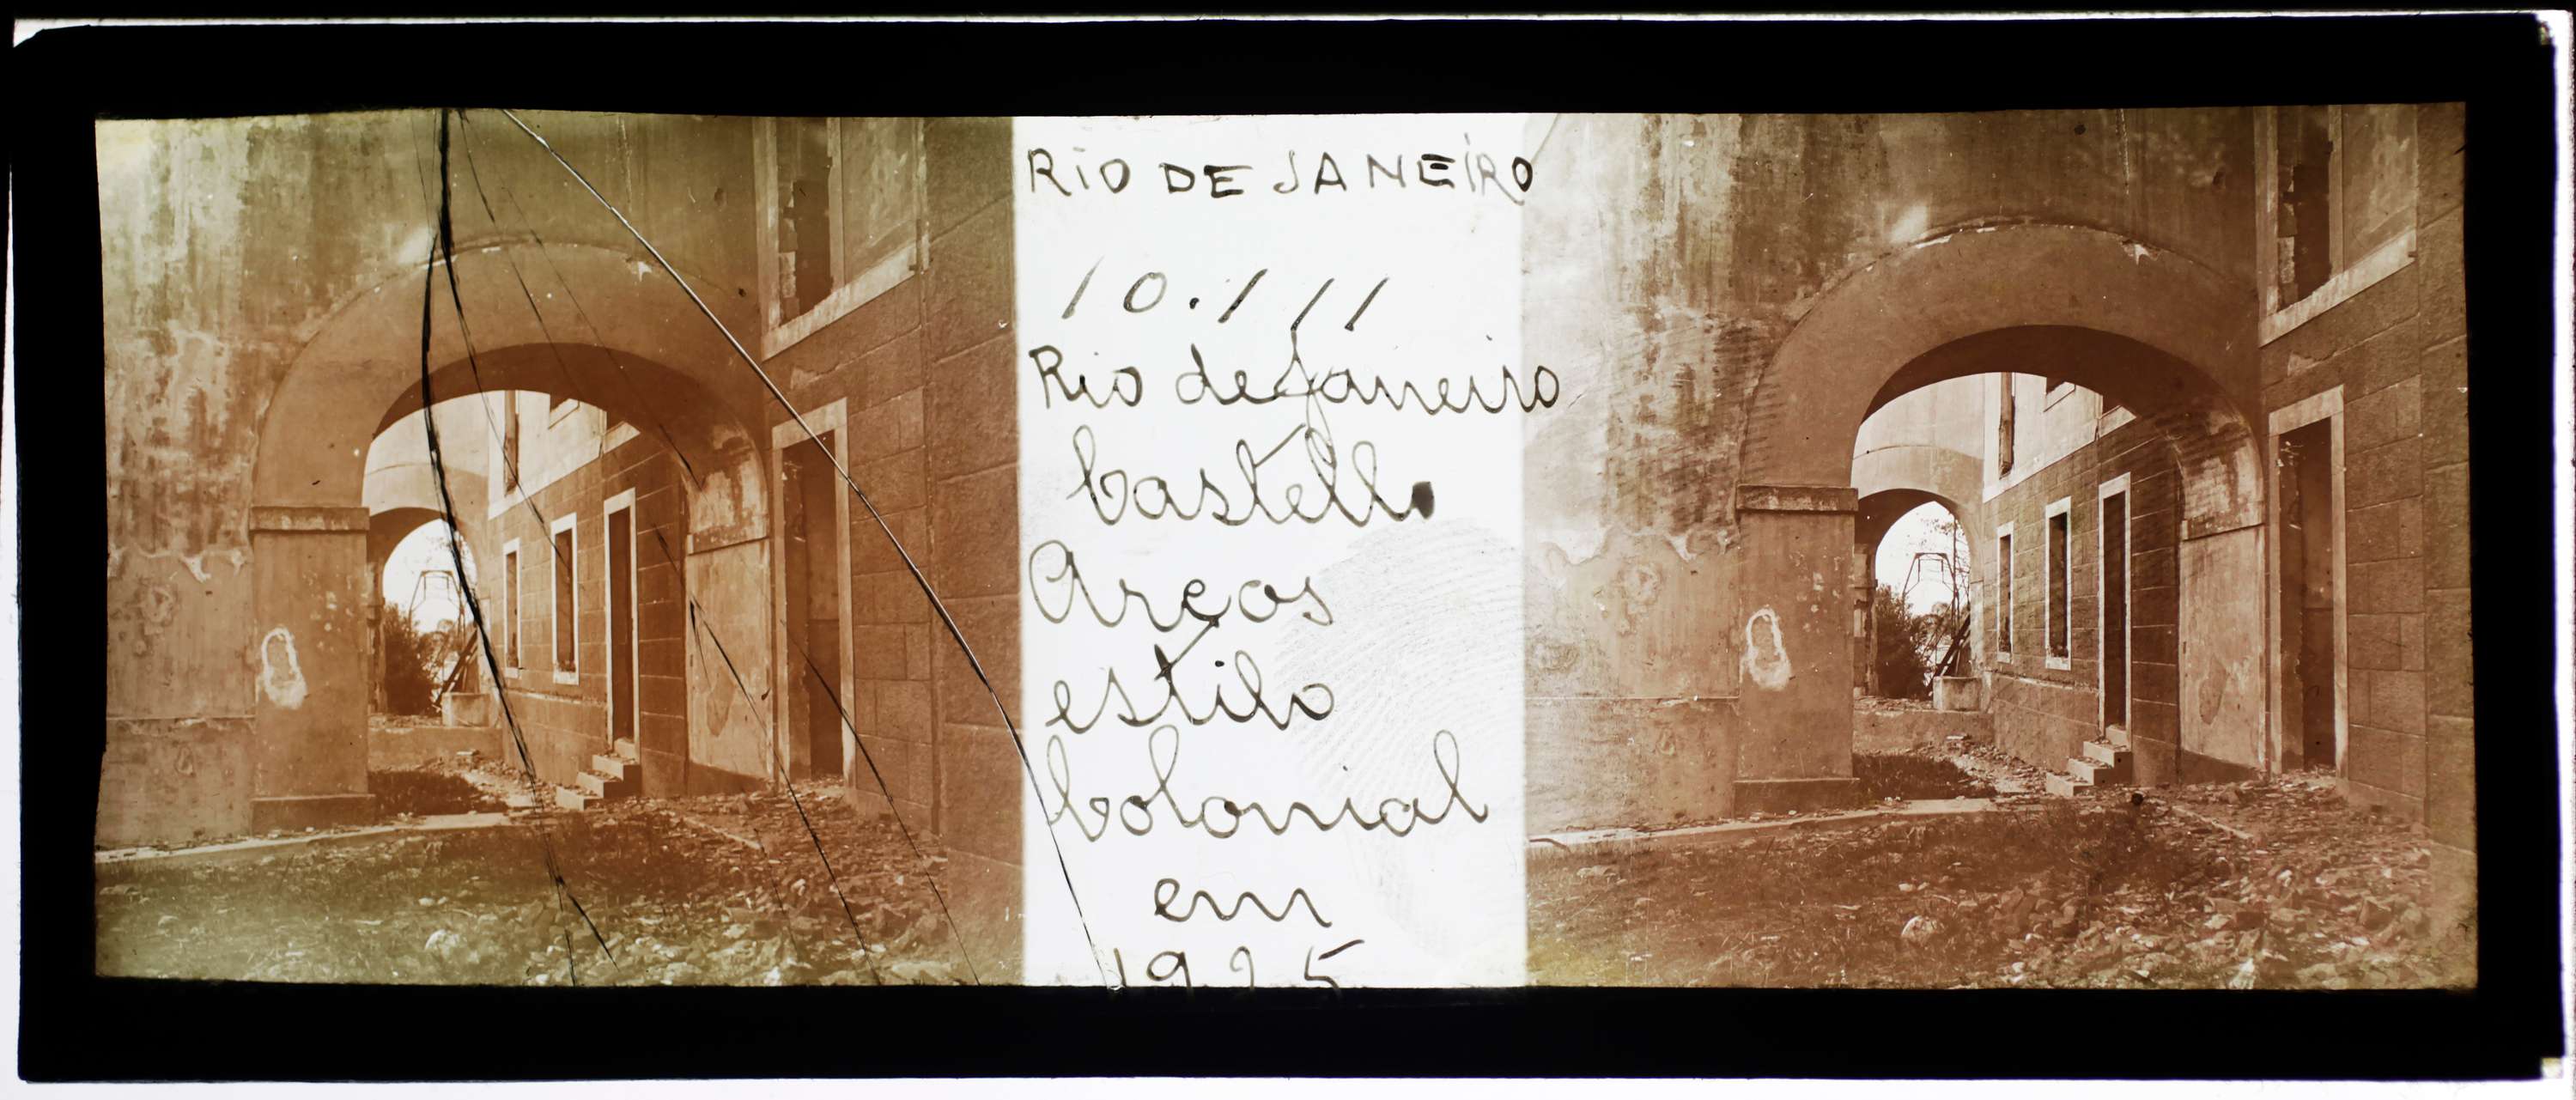 RIO DE JANEIRO
10.111
Rio de Janeiro
Castello
Arcos
estilo
Colonial
em
1925